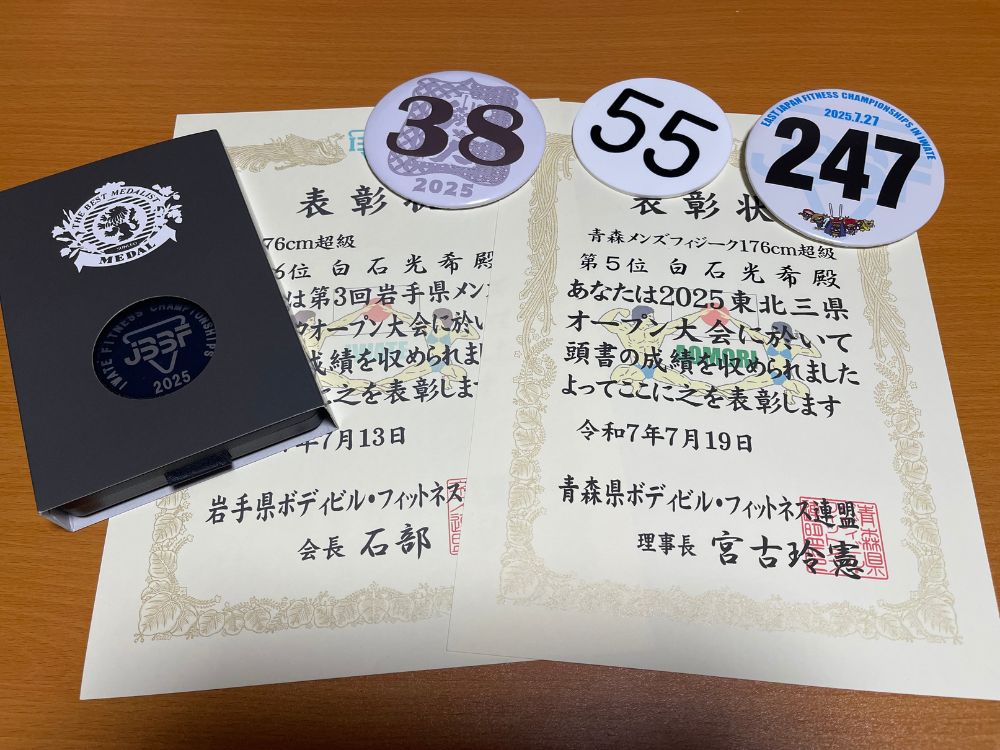 THE BEST MEDALIST
MEDAL
IWATE FITNESS CHAMPIONSHIPS
JBBF
2025
38
2025
55
EAST JAPAN FITNESS CHAMPIONSHIPS IN IWATE
2025.7.27
247
表彰
76cm超級
6位 白石光希殿
は第3回岩手県メン
オープン大会に於い
成績を収められま
に之を表彰しま
年7月13日
岩手県ボディビル・フィットネス
会長 石部
IWATE
表彰状
青森メンズフィジーク176cm超級
第5位 白石光希殿
あなたは2025東北三県
オープン大会に於いて
頭書の成績を収められました
よってここに之を表彰します
AOMORI
令和7年7月19日
青森県ボディビル・フィットネス連盟
理事長 宮古玲憲